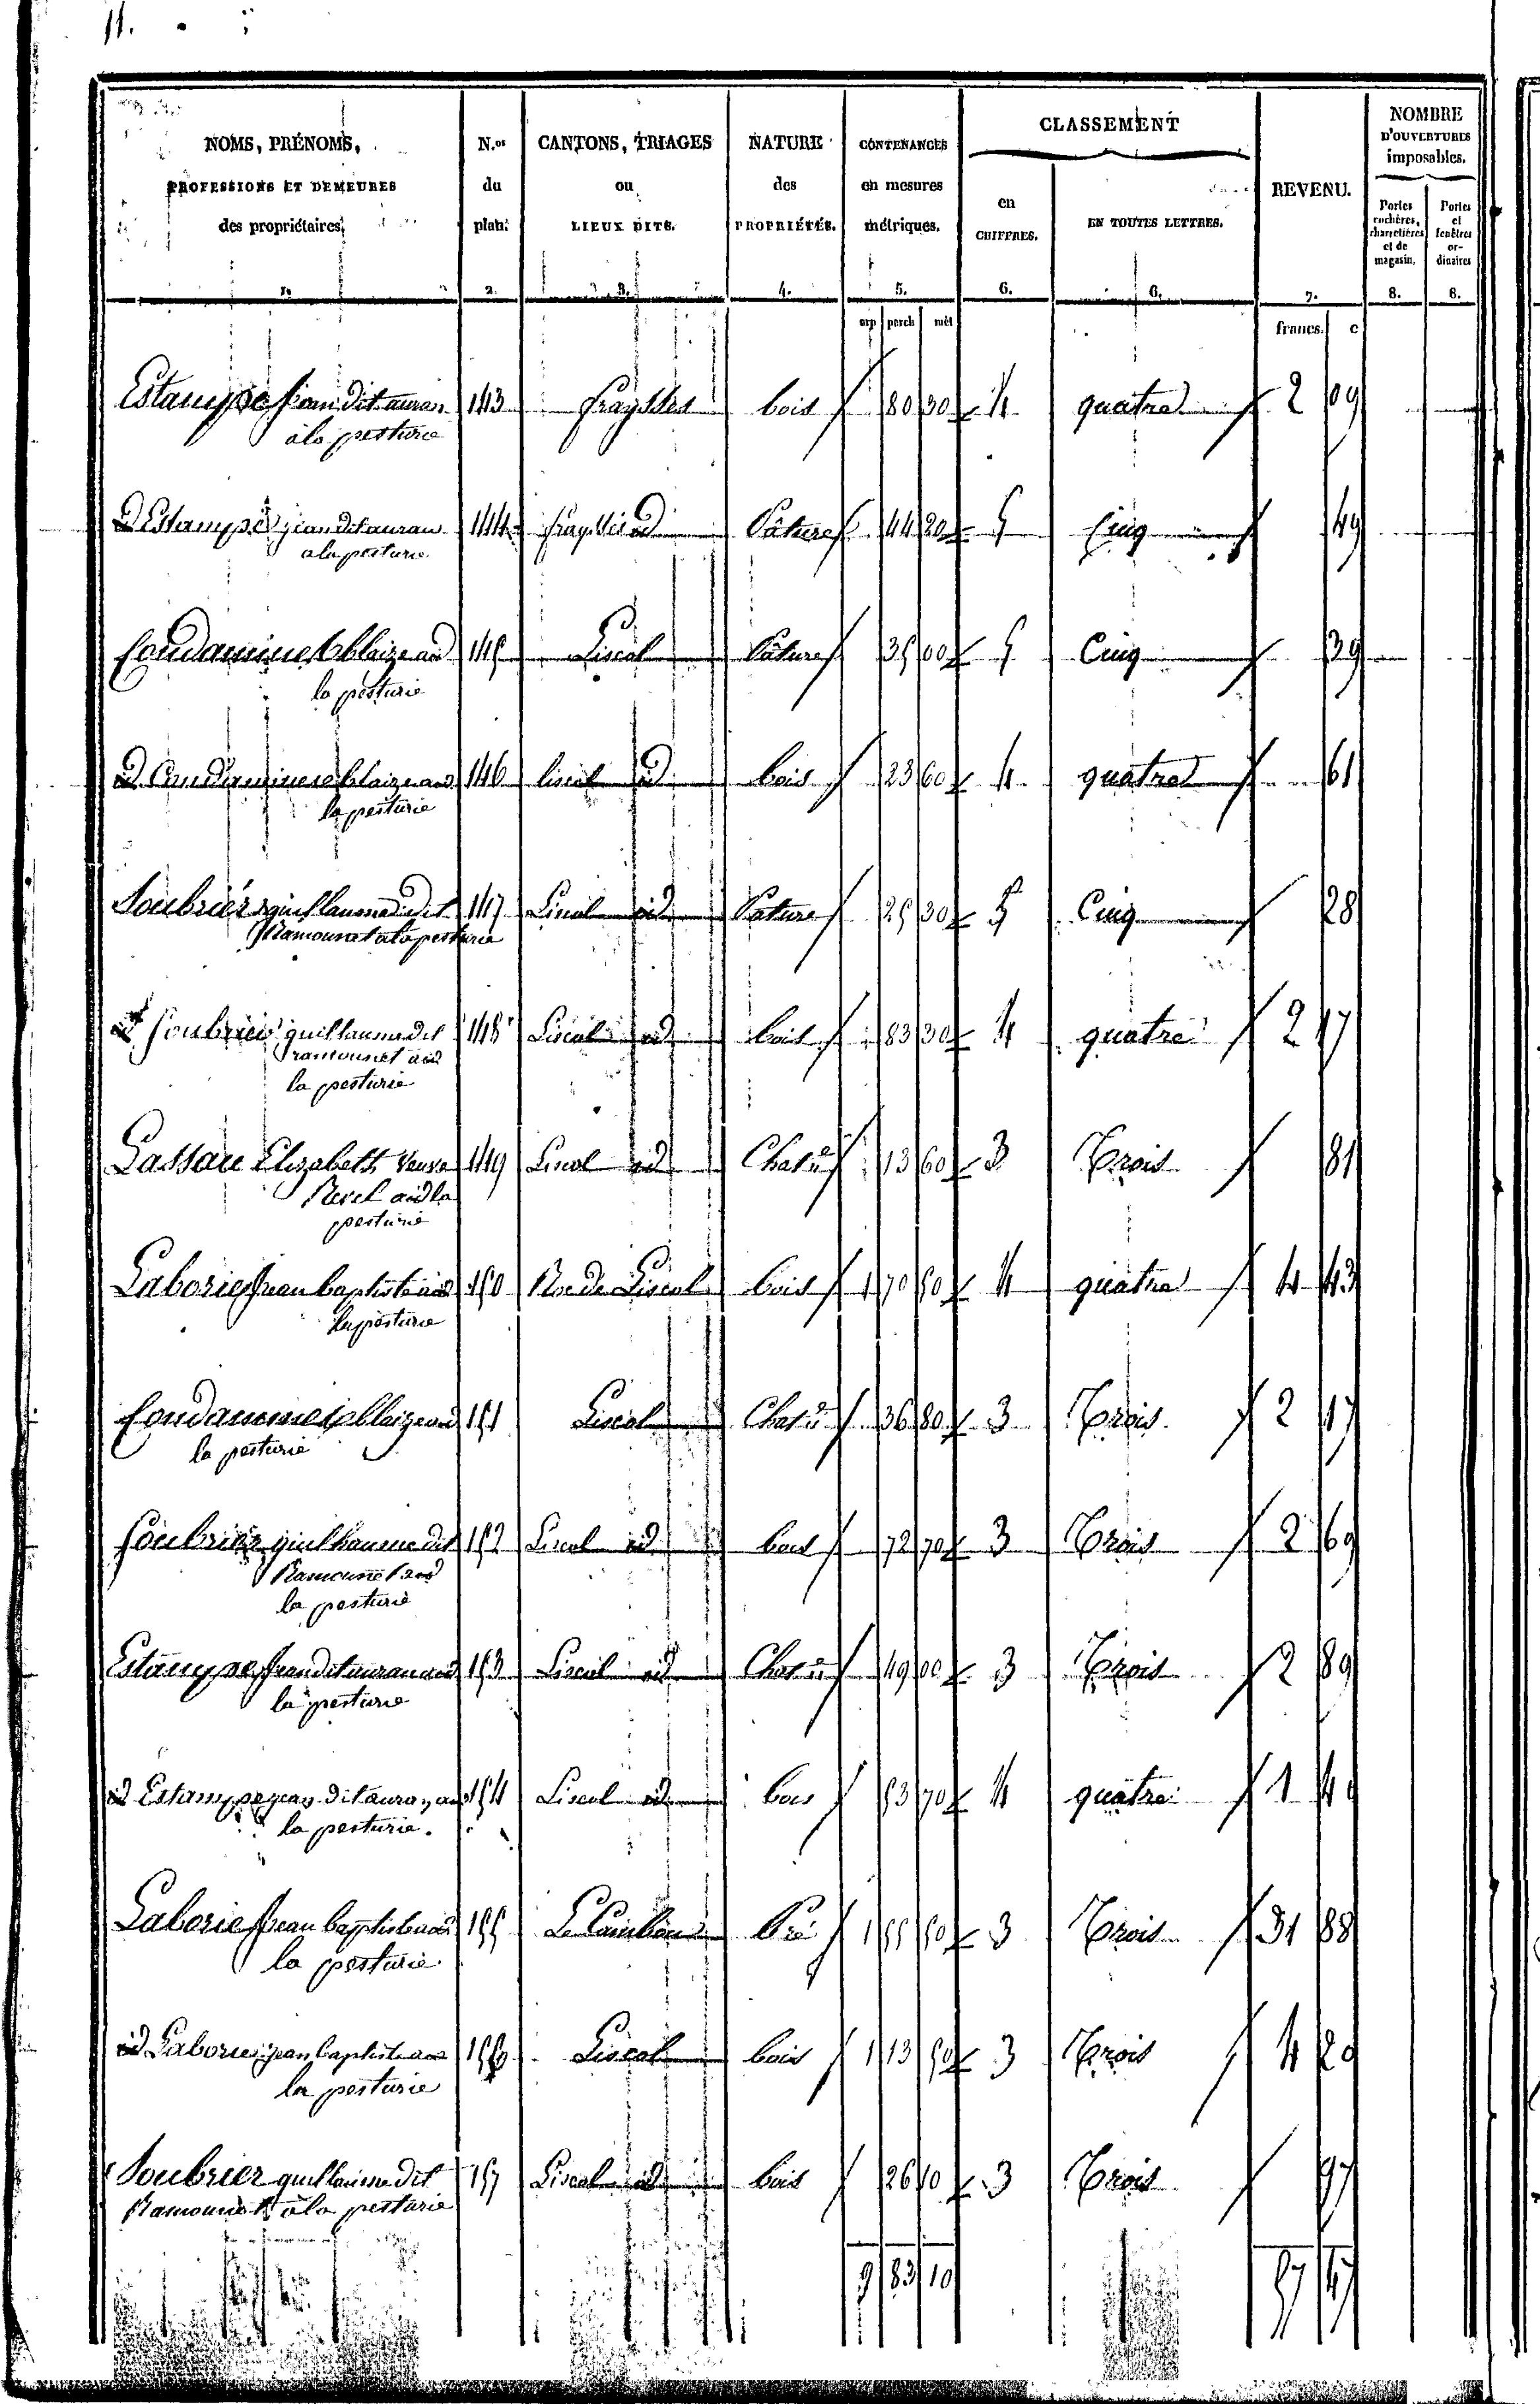 11.
NOMS, PRÉNOMS, PROFESSIONS ET DEMEURES des propriétaires. N.os du plan. CANTONS, TRIAGES ou LIEUX DITS. NATURE des PROPRIÉTÉS. CONTENANCES en mesures métriques. CLASSEMENT en CHIFFRES. EN TOUTES LETTRES. REVENU. NOMBRE D'OUVERTURES imposables. Portes cochères, charretières et de magasin. Portes et fenêtres ordinaires
1. 2. 3. 4. 5. 6. 6. 7. 8. 8.
arp perch mèt francs. c
Estampe jean dit auran 143 fraysses bois 80 30 4 quatre 2 09
à la pesturie
id Estampe jean dit auran 144 fraysses id Pature 44 20 5 Cinq 49
a la pesturie
Condamines blaize aid 145 Liscol Pature 35 00 5 Cinq 39
la pesturie
id Condamines blaize aid 146 liscol id bois 23 60 4 quatre 61
la pesturie
Soubrier guillaume dit 147 Liscol id Pature 25 30 5 Cinq 28
Ramounet a la pesturie
id Soubrier guillaume dit 148 Liscol id bois 83 30 4 quatre 2 17
ramounet aid
la pesturie
Elizabeth Veuve 149 Liscol id 13 60 3 Trois 81
aid la
pesturie
Laborie jean baptiste aid 150 Liscol bois 1 70 50 4 quatre 4 43
la pesturie
Condamines blaize aid 151 Liscol 36 80 3 Trois 2 17
la pesturie
Soubrier guilhaume dit 152 Liscol id bois 72 70 3 Trois 2 69
Ramounet aid
la pesturie
Estampe jean dit auran aid 153 Liscol id 49 00 3 Trois 2 89
la pesturie
id Estampe jean dit auran aid 154 Liscol id bois 53 70 4 quatre 1 40
la pesturie.
Laborie jean baptiste aid 155 Pré 1 55 50 3 Trois 31 88
la pesturie
id Laborie jean baptiste aid 156 Liscol bois 1 13 50 3 Trois 4 20
la pesturie
Soubrier guillaume dit 157 Liscol id bois 26 10 3 Trois 97
Ramounet à la pesturie
9 83 10 57 47